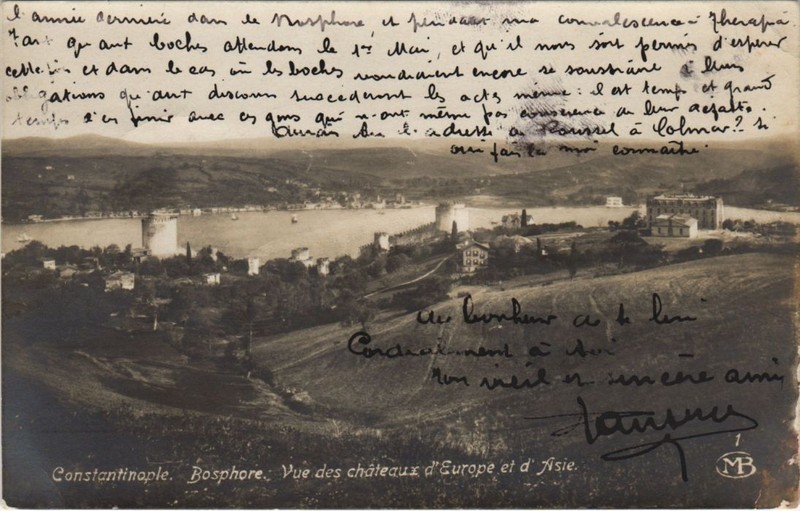 l'année dernière dans le Bosphore, et pendant ma convalescence à Thérapia.
Tant qu'aux boches attendons le 1er Mai, et qu'il nous soit permis d'espérer
et dans le cas où les boches voudraient encore se soustraire à leurs
obligations qu'aux discours succéderont les actes même : il est temps et grand
temps d'en finir avec ces gens qui n'ont même pas conscience de leur
Aurais tu l'adresse de Roussel à Colmar? Si
oui fais la moi connaître.
Au bonheur de te lire
Cordialement à toi
Ton vieil et sincère ami
Constantinople. Bosphore. Vue des châteaux d'Europe et d'Asie.
1
MB